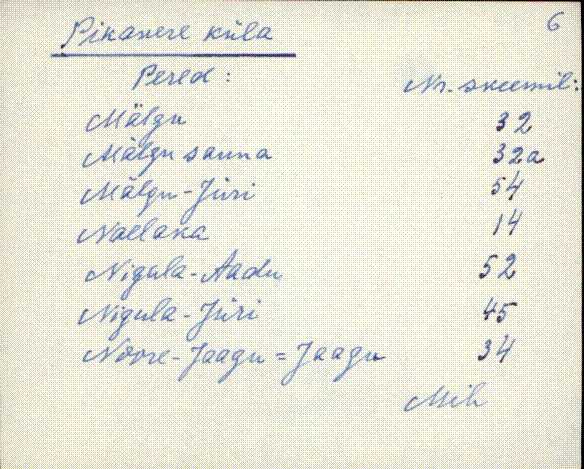 6
Pikavere küla
Pered: Nr. skeemil:
Mälgu 32
Mälgu sauna 32a
Mälgu-Jüri 54
Naelaka 14
Nigula-Aadu 52
Nigula-Jüri 45
Noore-Jaagu = Jaagu 34